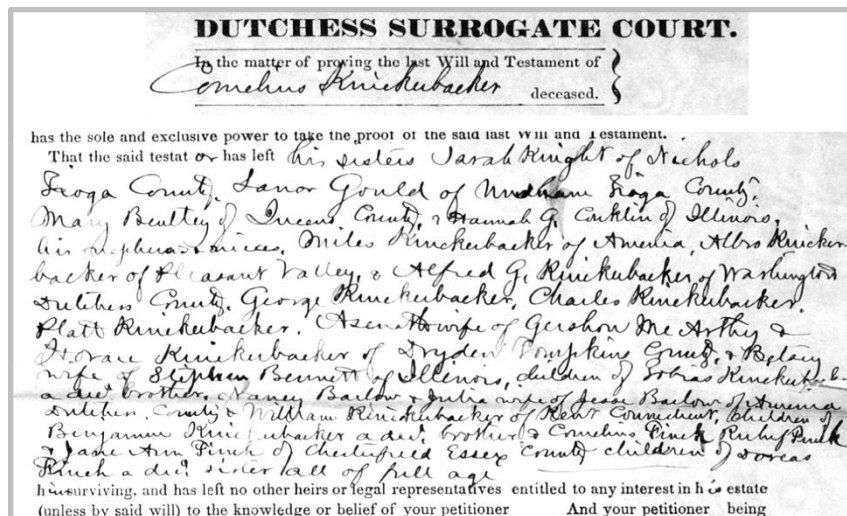 DUTCHESS SURROGATE COURT.
In the matter of proving the last Will and Testament of
Cornelius Knickerbacker
deceased.
has the sole and exclusive power to take the proof of the said last Will and Testament.
That the said testat or has left his sisters Sarah Knight of Nichols
Tioga County, Lanor Gould of Tioga County,
Mary Beultey of Queens County, & Hannah G. Conklin of Illinois,
his nephews & nieces, Miles Knickerbacker of Amenia, Albro Knicker
backer of Pleasant Valley, & Alfred G. Knickerbacker of Washington
Dutchess County, George Knickerbacker, Charles Knickerbacker,
Platt Knickerbacker, Asenath wife of Gershom McArthy &
Horace Knickerbacker of Dryden Tompkins County, & Betsey
wife of Stephen Bennett of Illinois, children of Tobias Knickerb
a decd brother. Nancy Barlow & Julia wife of Jesse Barlow of Amenia
Dutchess County & William Knickerbacker of Kent Connecticut, children of
Benjamin Knickerbacker a decd. brother & Cornelius Finch Rufus Finch
& Jane Ann Finch of Chesterfield Essex County children of Dorcas
Finch a decd sister all of full age
him surviving, and has left no other heirs or legal representatives entitled to any interest in his estate
(unless by said will) to the knowledge or belief of your petitioner And your petitioner being